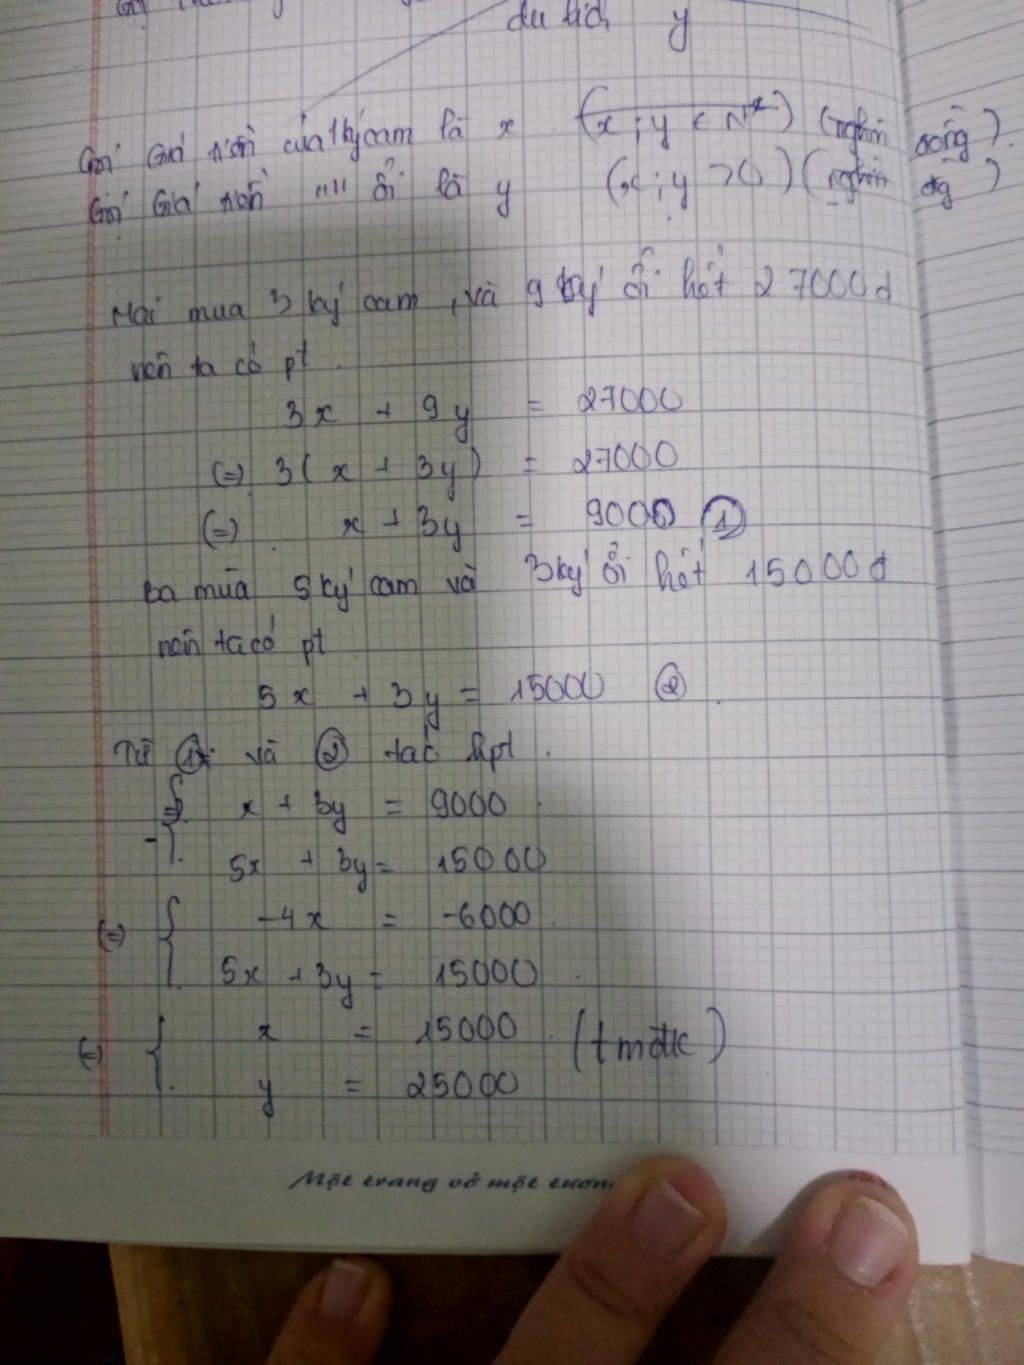 du lịch y
Gọi Giá tiền của 1 ký cam là x (x ; y ∈ N*) (nghìn đồng)
Gọi Giá tiền '''' ổi là y (x ; y > 0) (nghìn đg)
Mai mua 3 ký cam, và 9 ký ổi hết 27000đ
nên ta có pt.
3x + 9y = 27000
(=) 3(x + 3y) = 27000
(=) x + 3y = 9000 ①
Ba mua 5 ký cam và 3 ký ổi hết 15000đ
nên ta có pt
5x + 3y = 15000 ②.
Từ ① và ② ta có hpt.
{ x + 3y = 9000
- { 5x + 3y = 15000
(=) { -4x = -6000
5x + 3y = 15000
(=) { x = 15000 (tmđk)
y = 25000
Một trang vở một